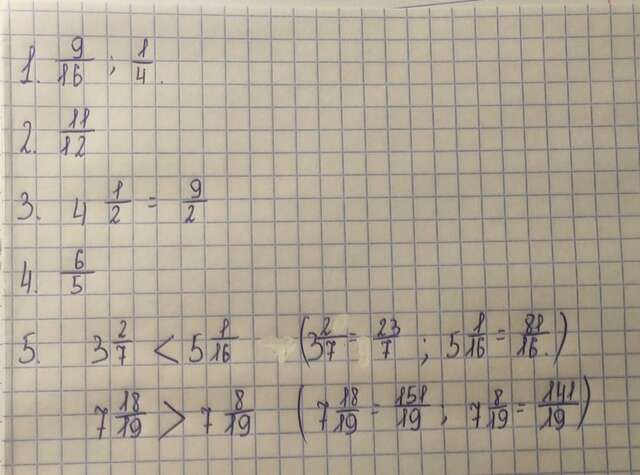 1. 9/16 ; 1/4.
2. 11/12
3. 4 1/2 = 9/2
4. 6/5
5. 3 2/7 < 5 1/16 (3 2/7 = 23/7 ; 5 1/16 = 81/16.)
7 18/19 > 7 8/19 (7 18/19 = 151/19 ; 7 8/19 = 141/19)